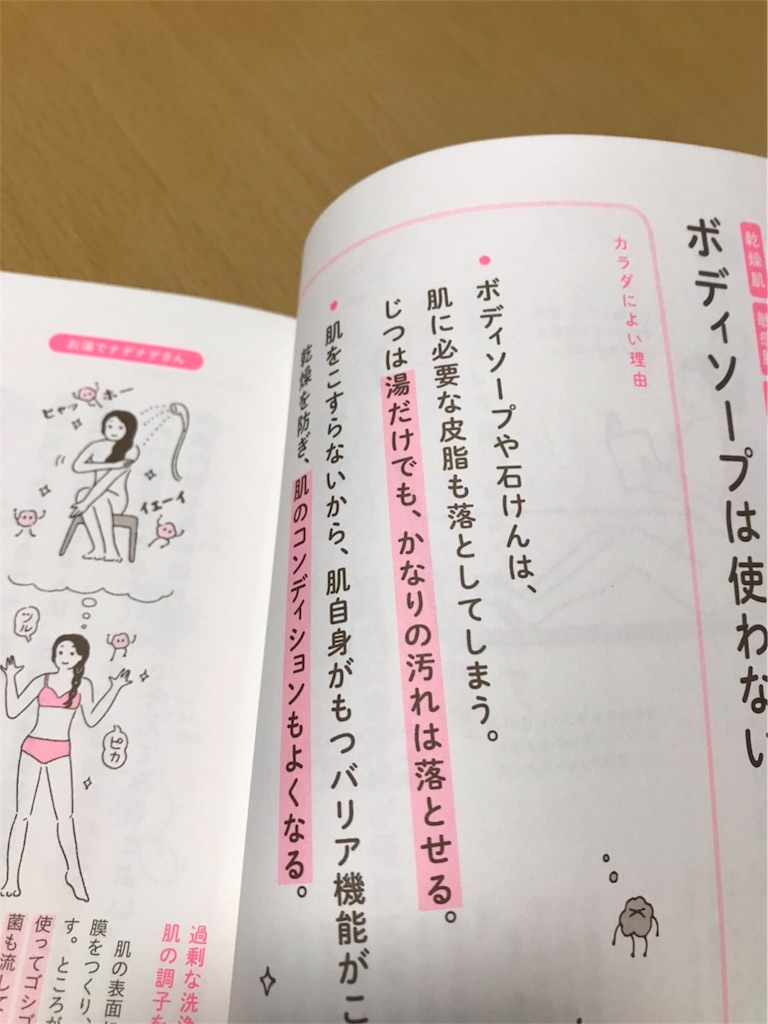 乾燥肌
敏感肌
ボディソープは使わない
カラダによい理由
● ボディソープや石けんは、
肌に必要な皮脂も落としてしまう。
じつは湯だけでも、かなりの汚れは落とせる。
● 肌をこすらないから、肌自身がもつバリア機能がこ
乾燥を防ぎ、肌のコンディションもよくなる。
お湯でナデナデさん
ヒャッホー
イエーイ
ツル
ピカ
過剰な洗浄
肌の調子を
肌の表面に
膜をつくり、
す。ところが
使ってゴシゴ
菌も流して